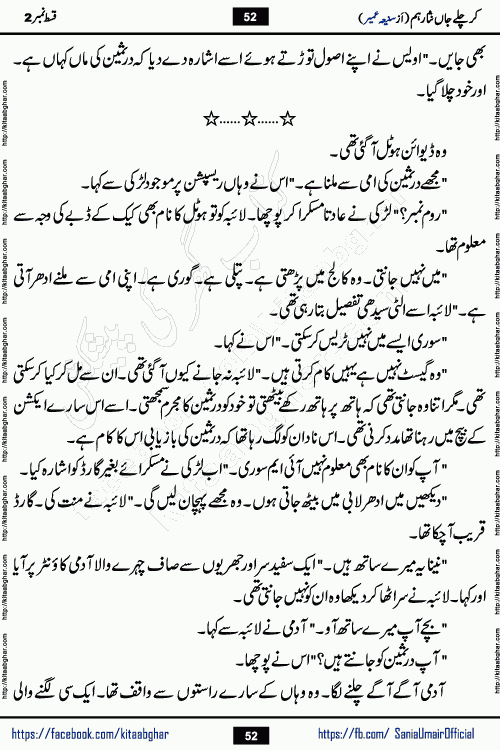 کر چلے جاں نثار ہم (از سنیعہ عمیر) 52 قسط نمبر 2
بھی جایں۔" اویس نے اپنے اصول توڑتے ہوئے اسے اشارہ دے دیا کہ درثمین کی ماں کہاں ہے۔
اور خود چلا گیا۔
☆......☆......☆
وہ ڈیوائن ہوٹل آ گئی تھی۔
"مجھے درثمین کی امی سے ملنا ہے۔" اس نے وہاں ریسپشن پر موجود لڑکی سے کہا۔
"روم نمبر؟" لڑکی نے عادتا مسکرا کر پوچھا۔ لائبہ کو تو ہوٹل کا نام بھی کیک کے ڈبے کی وجہ سے
معلوم تھا۔
"میں نہیں جانتی۔ وہ کالج میں پڑھتی ہے۔ پتلی ہے۔ گوری ہے۔ اپنی امی سے ملنے ادھر آتی
ہے۔" لائبہ اسے الٹی سیدھی تفصیل بتا رہی تھی۔
"سوری ایسے میں نہیں ٹریس کر سکتی۔" اس نے کہا۔
"وہ گیسٹ نہیں ہے یہیں کام کرتی ہیں۔" لائبہ نہ جانے کیوں آ گئی تھی۔ ان سے مل کر کیا کر سکتی
تھی۔ مگر اتنا وہ جانتی تھی کہ ہاتھ پر ہاتھ رکھے بیٹھتی تو خود کو درثمین کا مجرم سمجھتی۔ اسے اس سارے ایکشن
کے بیچ میں رہنا تھا مدد کرنی تھی۔ اس نادان کو لگ رہا تھا کہ درثمین کی بازیابی اس کا کام ہے۔
"آپ کو ان کا نام بھی معلوم نہیں آئی ایم سوری۔" اب لڑکی نے مسکرائے بغیر گارڈ کو اشارہ کیا۔
"دیکھیں میں ادھر لابی میں بیٹھ جاتی ہوں۔ وہ مجھے پہچان لیں گی۔" لائبہ نے منت کی۔ گارڈ
قریب آ چکا تھا۔
"نینا یہ میرے ساتھ ہیں۔" ایک سفید سر اور جھریوں سے صاف چہرے والا آدمی کاؤنٹر پر آیا
اور کہا۔ لائبہ نے سر اٹھا کر دیکھا وہ ان کو نہیں جانتی تھی۔
"بچے آپ میرے ساتھ آو۔" آدمی نے لائبہ سے کہا۔
"آپ درثمین کو جانتے ہیں؟" اس نے پوچھا۔
آدمی آگے آگے چلنے لگا۔ وہ وہاں کے سارے راستوں سے واقف تھا۔ ایک سی لگنے والی
https://facebook.com/kitaabghar 52 https://fb.com/ SaniaUmairOfficial
http://kitaabghar.com